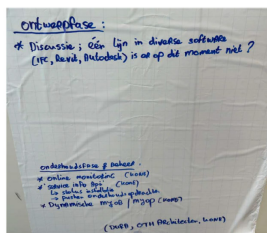 ontwerpfase :
* Discussie ; één lijn in diverse software
(IFC, Revit, Autodesk) is er op dit moment niet ?
onderhoudsfase & beheer :
* online monitoring (KONE)
* service info API (KONE)
↳ status installatie
→ pushen onderhoudsopdrachten
* Dynamische mjob / mjop (KONE)
OTH Architecten, KONE)